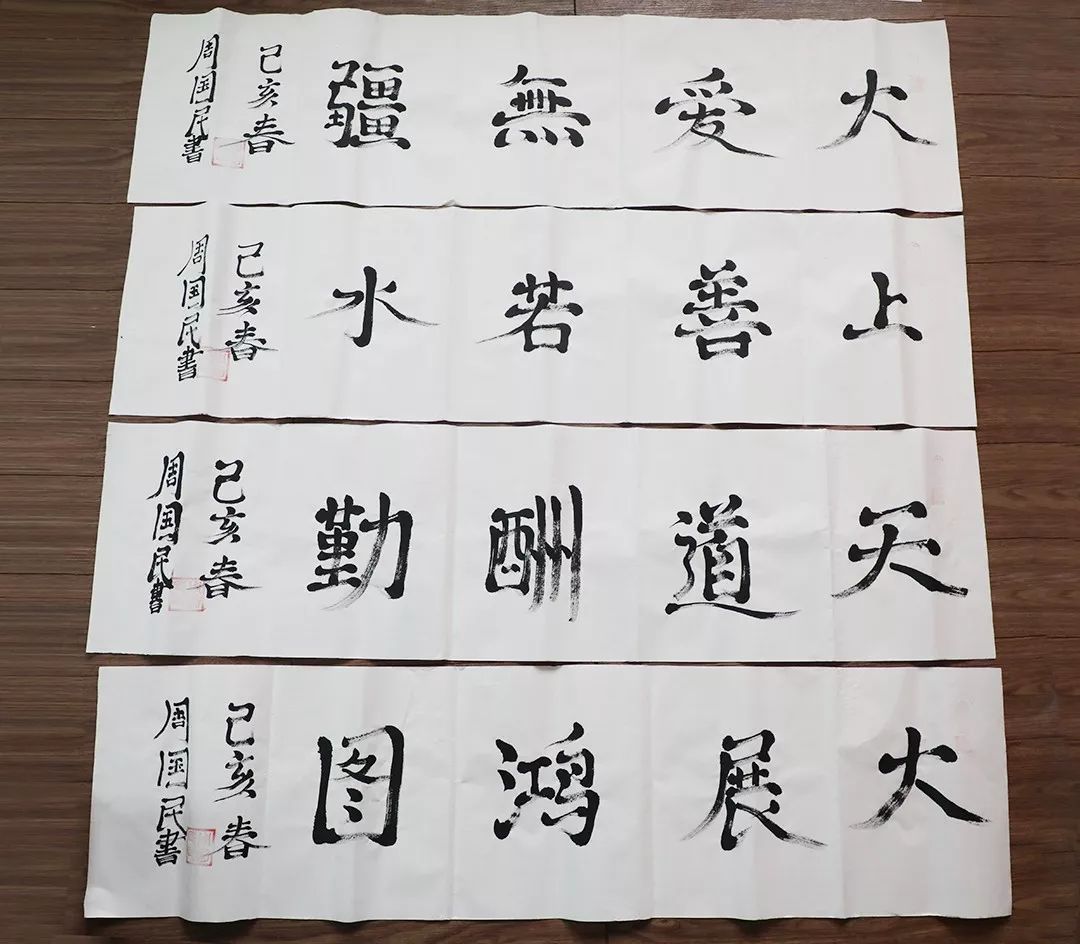 大爱無疆
己亥春
周国民書
上善若水
己亥春
周国民書
天道酬勤
己亥春
周国民書
大展鸿图
己亥春
周国民書